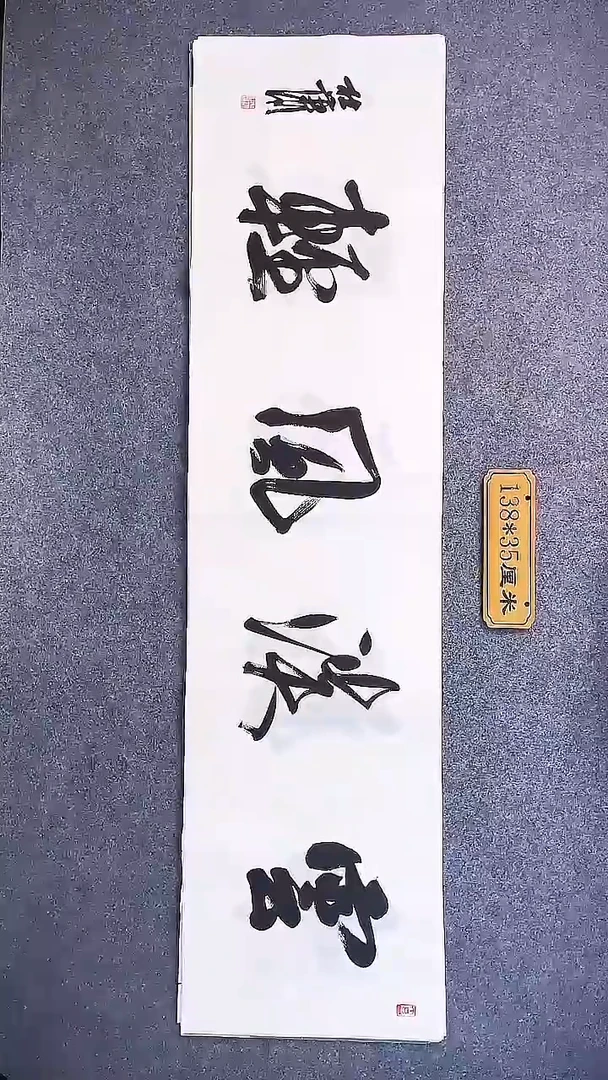 雲淡風輕
138*35厘米